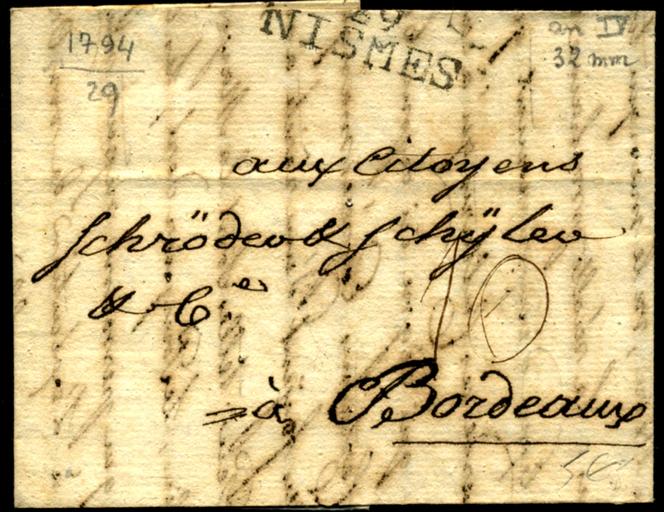 1794
29
29
NISMES
an IV
32 mm
aux Citoyens
Schröder & Schÿler
& C.e
10
à Bordeaux